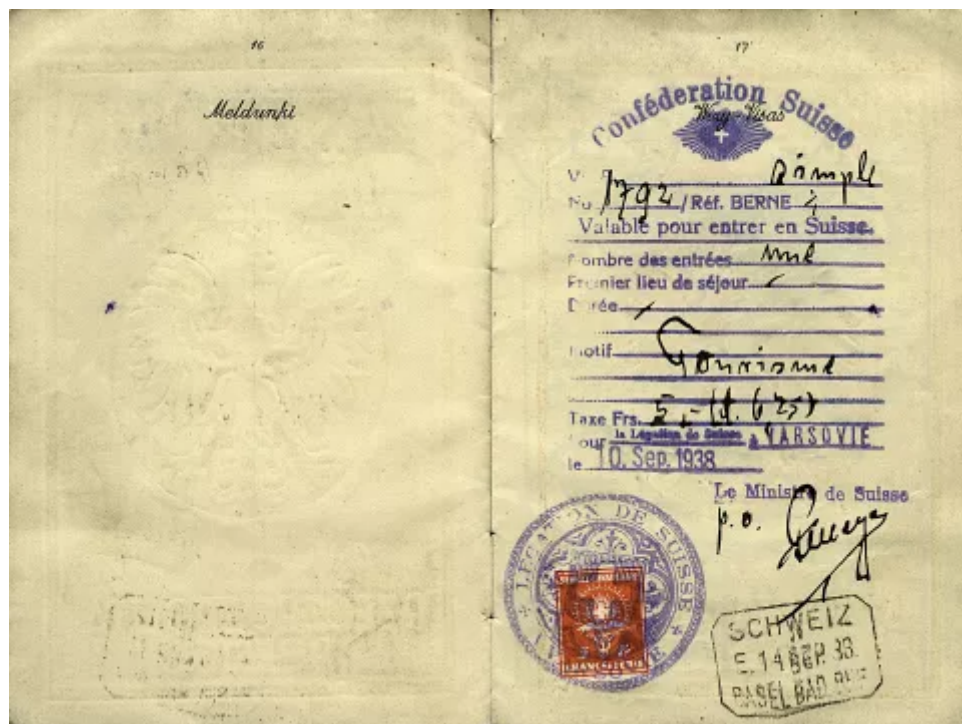 16
Meldunki
17
Confédération Suisse
Wizy - Visas
simple
No 1792 / Réf. BERNE
Valable pour entrer en Suisse.
Nombre des entrées une
Premier lieu de séjour
Durée
Motif
Tourisme
Taxe Frs. 5.-
pour la Légation de Suisse à VARSOVIE
le 10. Sep. 1938
Le Ministre de Suisse
p. o.
LEGATION DE SUISSE
SCHWEIZ
E 14 SEP. 38
BASEL BAD